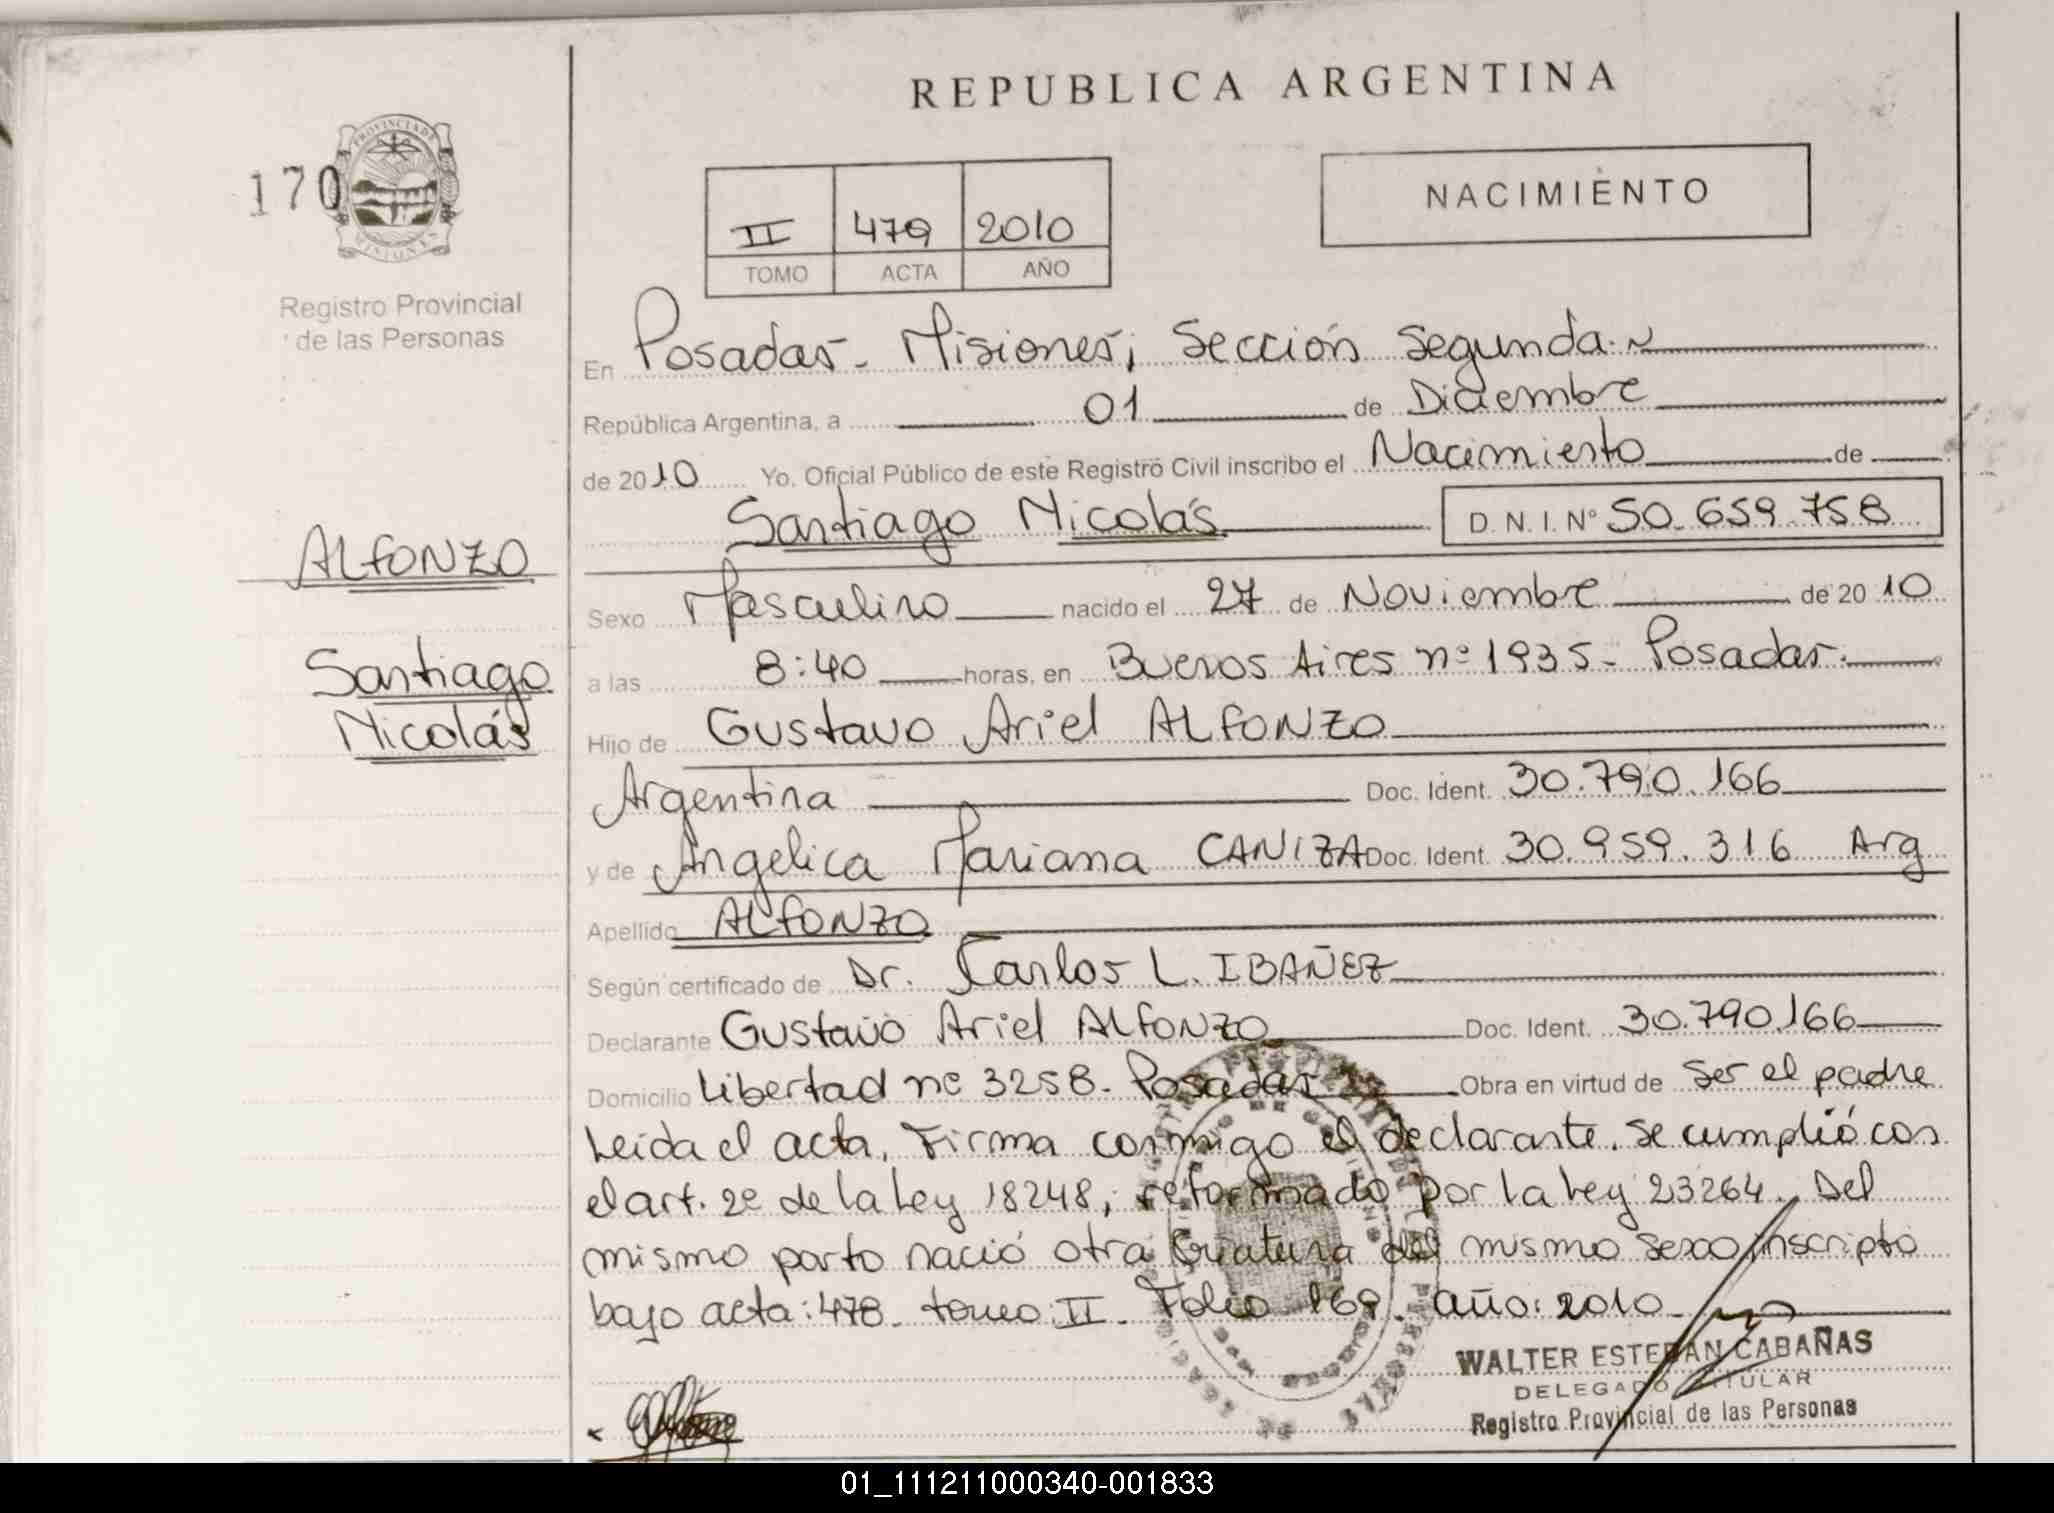 REPUBLICA ARGENTINA
170
PROVINCIA DE
MISIONES
NACIMIENTO
II 479 2010
TOMO ACTA AÑO
Registro Provincial
de las Personas
En Posadas - Misiones, Sección Segunda.
República Argentina, a 01 de Diciembre
de 2010 Yo. Oficial Público de este Registro Civil inscribo el Nacimiento de
Santiago Nicolás D.N.I. Nº 50.659.758
ALFONZO
Santiago
Nicolás
Sexo Masculino nacido el 27 de Noviembre de 2010
a las 8:40 horas, en Buenos Aires nº 1935 - Posadas.
Hijo de Gustavo Ariel ALFONZO
Argentina Doc. Ident. 30.790.166
y de Angelica Mariana CANIZA Doc. Ident. 30.959.316 Arg
Apellido ALFONZO
Según certificado de Dr. Carlos L. IBAÑEZ
Declarante Gustavo Ariel ALFONZO Doc. Ident. 30.790.166
Domicilio Libertad nº 3258 - Posadas Obra en virtud de ser el padre
Leida el acta, Firma conmigo el declarante. Se cumplió con
el art. 2º de la Ley 18248, reformado por la Ley 23264. Del
mismo parto nació otra criatura del mismo sexo inscripto
bajo acta: 478 - tomo: II - Folio 169. año: 2010
WALTER ESTEBAN CABAÑAS
DELEGADO TITULAR
Registro Provincial de las Personas
01_111211000340-001833